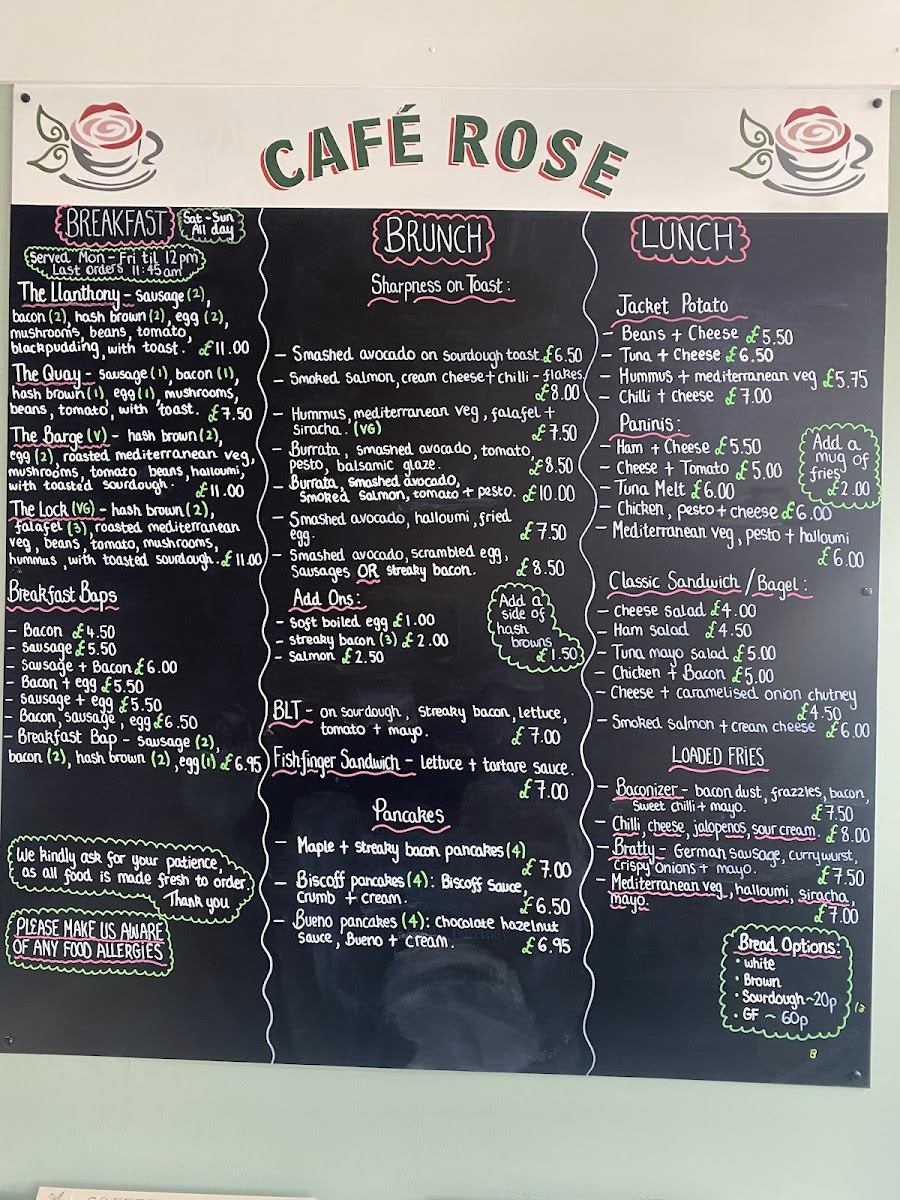 CAFÉ ROSE
BREAKFAST
Sat-Sun
All day
Served Mon-Fri til 12pm
Last orders 11:45am
The Llanthony - sausage (2),
bacon (2), hash brown (2), egg (2),
mushrooms, beans, tomato,
blackpudding, with toast. £11.00
The Quay - sausage (1), bacon (1),
hash brown (1), egg (1), mushrooms,
beans, tomato, with toast. £7.50
The Barge (V) - hash brown (2),
egg (2), roasted mediterranean veg,
mushrooms, tomato beans, halloumi,
with toasted sourdough. £11.00
The Lock (VG) - hash brown (2),
falafel (3), roasted mediterranean
veg, beans, tomato, mushrooms,
hummus, with toasted sourdough. £11.00
Breakfast Baps
- Bacon £4.50
- Sausage £5.50
- Sausage + Bacon £6.00
- Bacon + egg £5.50
- Sausage + egg £5.50
- Bacon, sausage, egg £6.50
- Breakfast Bap - sausage (2),
bacon (2), hash brown (2), egg (1) £6.95
We kindly ask for your patience,
as all food is made fresh to order.
Thank you
PLEASE MAKE US AWARE
OF ANY FOOD ALLERGIES
BRUNCH
Sharpness on Toast:
- Smashed avocado on sourdough toast. £6.50
- Smoked salmon, cream cheese + chilli-flakes
£8.00
- Hummus, mediterranean veg, falafel +
Siracha. (VG) £7.50
- Burrata, smashed avocado, tomato,
pesto, balsamic glaze. £8.50
- Burrata, smashed avocado,
smoked salmon, tomato + pesto. £10.00
- Smashed avocado, halloumi, fried
egg. £7.50
- Smashed avocado, scrambled egg,
sausages OR streaky bacon. £8.50
Add Ons:
- soft boiled egg £1.00
- streaky bacon (3) £2.00
- salmon £2.50
Add a
side of
hash
browns
£1.50
BLT - on sourdough, streaky bacon, lettuce,
tomato + mayo. £7.00
Fishfinger Sandwich - lettuce + tartare sauce.
£7.00
Pancakes
- Maple + streaky bacon pancakes (4)
£7.00
- Biscoff pancakes (4): Biscoff sauce,
crumb + cream. £6.50
- Bueno pancakes (4): chocolate hazelnut
sauce, Bueno + cream. £6.95
LUNCH
Jacket Potato
- Beans + Cheese £5.50
- Tuna + Cheese £6.50
- Hummus + mediterranean veg £5.75
- Chilli + cheese £7.00
Paninis:
- Ham + Cheese £5.50
- Cheese + Tomato £5.00
- Tuna Melt £6.00
- Chicken, pesto + cheese £6.00
- Mediterranean veg, pesto + halloumi
£6.00
Add a
mug of
fries
£2.00
Classic Sandwich / Bagel:
- cheese salad £4.00
- Ham salad £4.50
- Tuna mayo salad £5.00
- Chicken + Bacon £5.00
- Cheese + caramelised onion chutney
£4.50
- Smoked salmon + cream cheese £6.00
LOADED FRIES
- Baconizer - bacon dust, frazzles, bacon,
sweet chilli + mayo. £7.50
- Chilli, cheese, jalopenos, sour cream. £8.00
- Bratty - German sausage, currywurst,
crispy onions + mayo. £7.50
- Mediterranean veg, halloumi, siracha,
mayo. £7.00
Bread Options:
• white
• Brown
• Sourdough ~ 20p
• GF ~ 60p